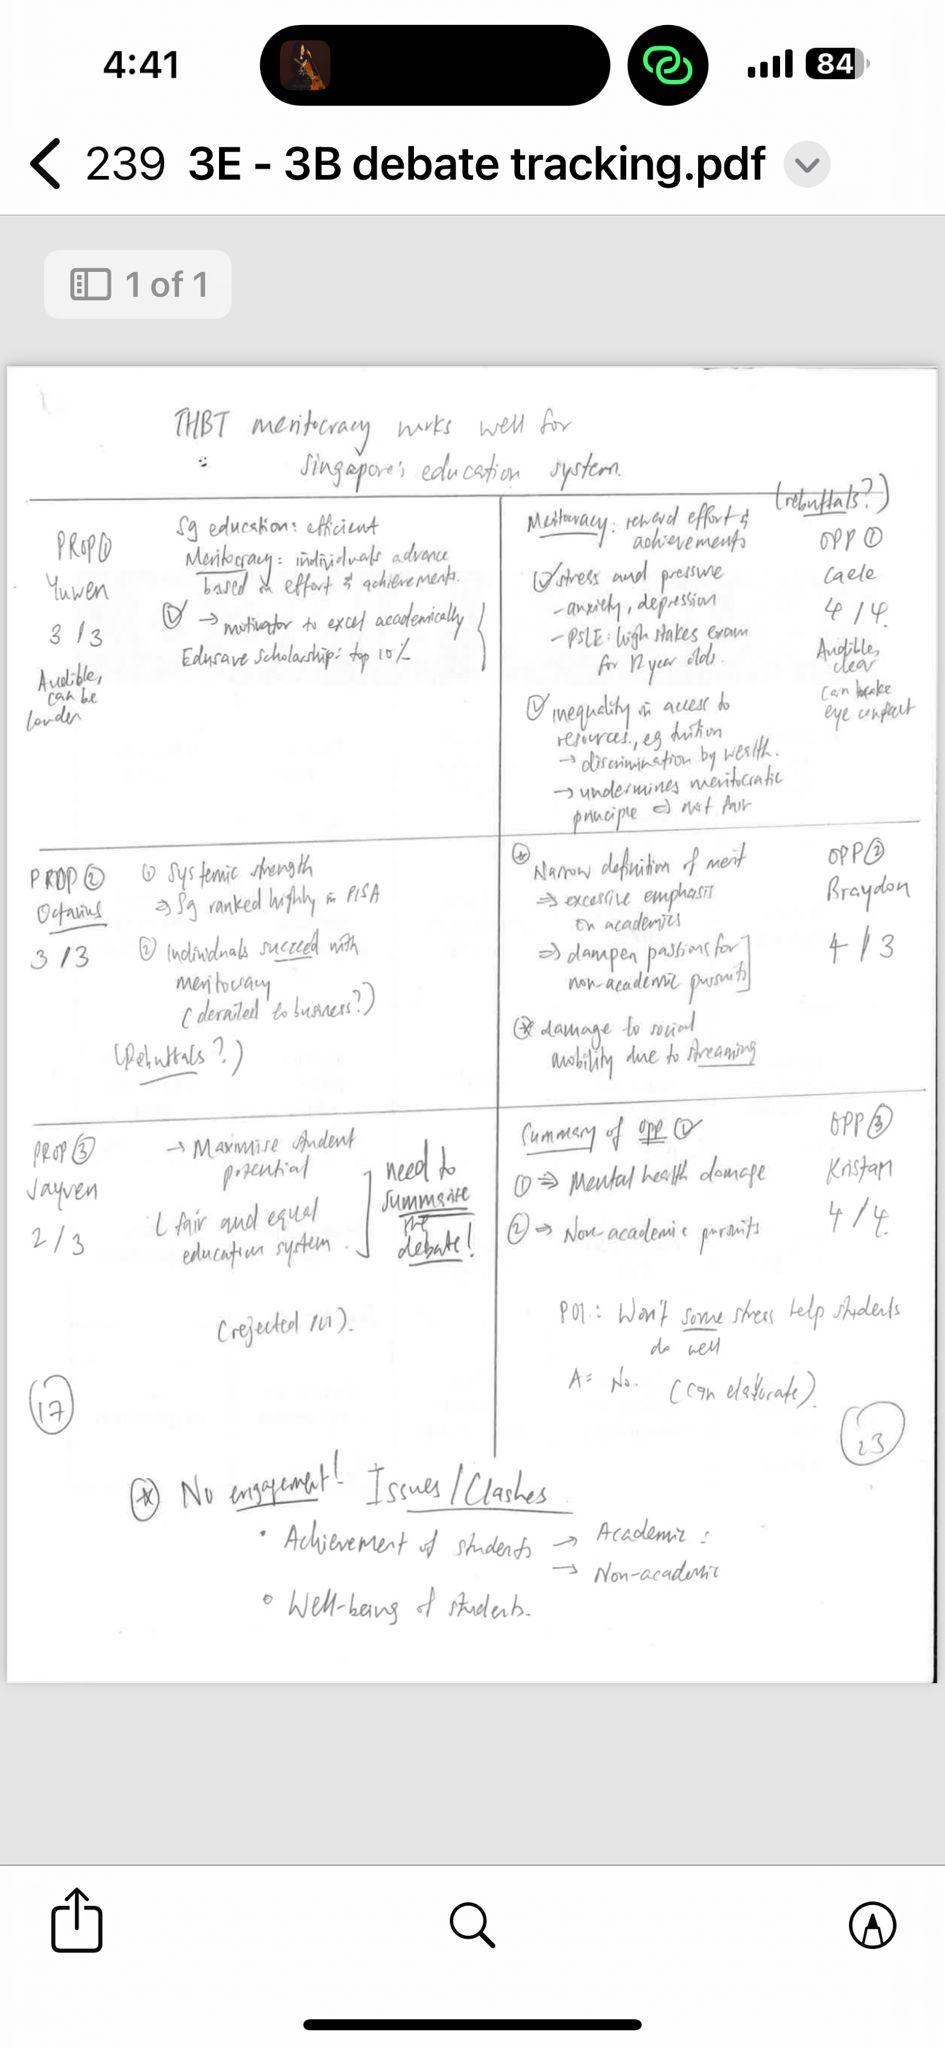 4:41
84
239 3E - 3B debate tracking.pdf
1 of 1
THBT meritocracy works well for
Singapore's education system.
PROP 1
Yuwen
3 / 3
Audible,
can be
louder
Sg education: efficient
Meritocracy: individuals advance
based on effort & achievements.
→ motivator to excel academically
Edusave Scholarship: top 10%
(rebuttals?)
Meritocracy: reward effort &
achievements
stress and pressure
- anxiety, depression
- PSLE: high stakes exam
for 12 year olds.
inequality in access to
resources, eg tuition
→ discrimination by wealth.
→ undermines meritocratic
principle ⇒ not fair
OPP 1
Caele
4 / 4
Audible,
clear
can make
eye contact
PROP 2
Octavius
3 / 3
1 Systemic strength
⇒ Sg ranked highly in PISA
2 Individuals succeed with
meritocracy
(derailed to business?)
(Rebuttals?)
Narrow definition of merit
⇒ excessive emphasis
on academics
⇒ dampen passions for
non-academic pursuits
damage to social
mobility due to streaming
OPP 2
Braydon
4 / 3
PROP 3
Jayven
2 / 3
→ Maximise student
potential
fair and equal
education system.
need to
summarise
the
debate!
(rejected POI).
17
Summary of opp 1
1 ⇒ Mental health damage
2 → Non-academic pursuits
OPP 3
Kristan
4 / 4.
POI: Won't some stress help students
do well
A: No. (can elaborate).
23
No engagement! Issues/Clashes
• Achievement of students → Academic
→ Non-academic
• Well-being of students.